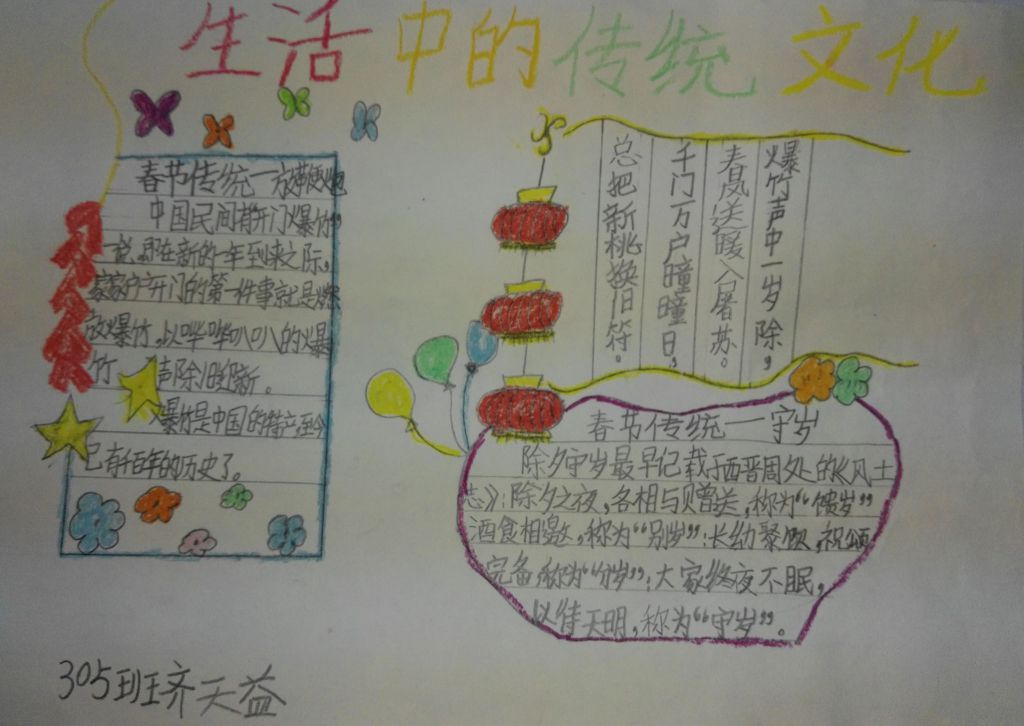 生活中的传统文化
春节传统一放鞭炮
中国民间有"开门爆竹"
一说,即在新的一年到来之际,
家家户户开门的第一件事就是燃
放爆竹,以哔哔叭叭的爆
竹声除旧迎新。
爆竹是中国的特产,至今
已有千百年的历史了。
爆竹声中一岁除,
春风送暖入屠苏。
千门万户曈曈日,
总把新桃换旧符。
春节传统一守岁
除夕守岁最早记载于西晋周处的《风土
志》:除夕之夜,各相与赠送,称为"馈岁"
酒食相邀,称为"别岁";长幼聚饮,祝颂
完备,称为"分岁";大家终夜不眠,
以待天明,称为"守岁"。
305班齐天益